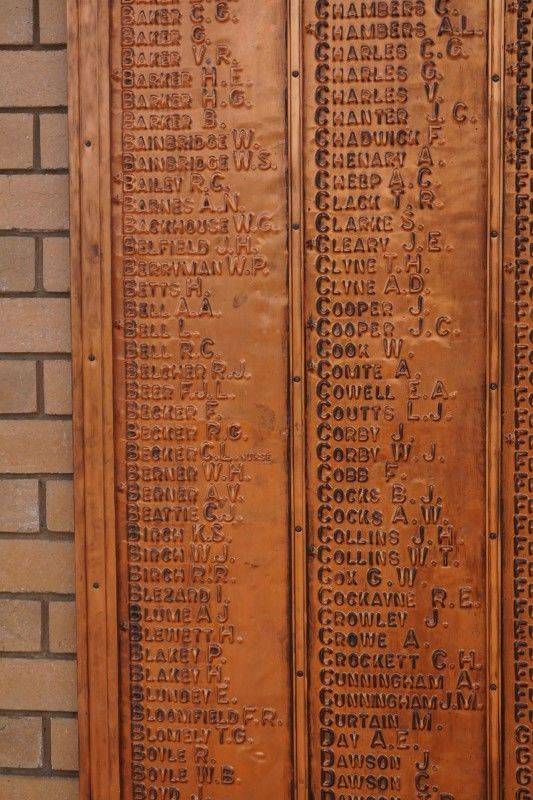 BAKER C.G.
BAKER G.
BAKER V.R.
BARKER H.E.
BARKER H.G.
BARKER B.
BAINBRIDGE W.
BAINBRIDGE W.S.
BAILEY R.C.
BARNES A.N.
BACKHOUSE W.G.
BELFIELD J.H.
BERRYMAN W.P.
BETTS H.
BELL A.A.
BELL L.
BELL R.C.
BELCHER R.J.
BEER F.J.L.
BECKER F.
BECKER R.G.
BECKER C.L. NURSE
BERNER W.H.
BERNER A.V.
BEATTIE C.J.
BIRCH K.S.
BIRCH W.J.
BIRCH R.R.
BLEZARD I.
BLUME A J
BLEWETT H.
BLAKEY P.
BLAKEY H.
BLUNDEY E.
BLOOMFIELD F.R.
BLOMELY T.G.
BOYLE R.
BOYLE W.B.
BOYD J.
CHAMBERS C.
CHAMBERS A.L.
CHARLES C.G.
CHARLES G.
CHARLES V.
CHANTER J.C.
CHADWICK F.
CHENARY A.
CHEEP A.C.
CLACK T.R.
CLARKE S.
CLEARY J.E.
CLYNE T.H.
CLYNE A.D.
COOPER J.
COOPER J.C.
COOK W.
COMTE A.
COWELL E.A.
COUTTS L.J.
CORBY J.
CORBY W.J.
COBB F.
COCKS B.J.
COCKS A.W.
COLLINS J.H.
COLLINS W.T.
COX G.W.
COCKAYNE R.E.
CROWLEY J.
CROWE A.
CROCKETT C.H.
CUNNINGHAM A.
CUNNINGHAM J.M.
CURTAIN M.
DAY A.E.
DAWSON J.
DAWSON C.
DAWSON